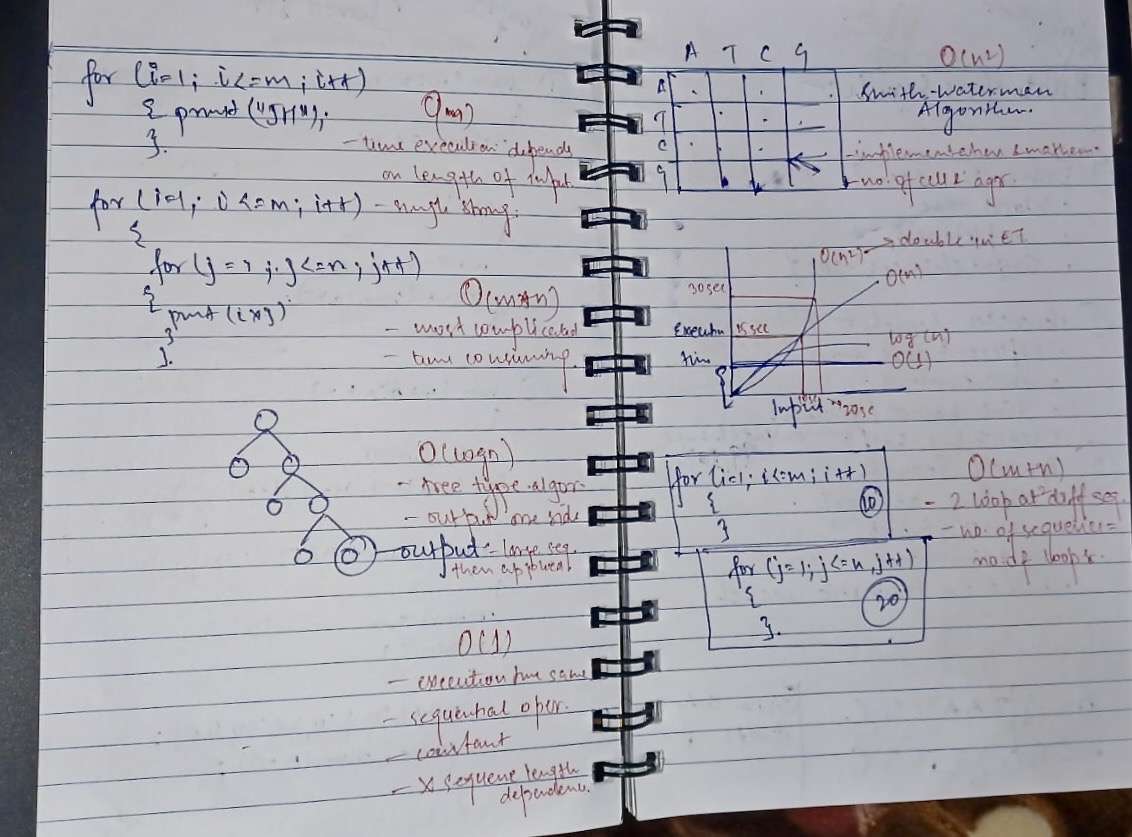 for (i=1; i<=m; i++)
{ print ("JH");
}.
- time execution depends
on length of input.
for (i=1; i<=m; i++) - single string.
{
for (j = 1; j<=n; j++)
{
print (i*j)
}
}.
O(m*n)
- most complicated
- time consuming.
O(logn)
- tree type algor.
- output one side
output - large seq.
then
O(1)
- execution time same
- sequential oper.
- constant
- x sequene length
dependence.
A T C G
A
T
C
G
O(n²)
Smith-waterman
Algorithm.
- implementation & mathem.
- no. of cell² agr.
O(n²) → double in ET
O(n)
log(n)
O(1)
30sec
15sec
Execution
time
Input
20sec
for (i=1; i<=m; i++)
{
10
}
for (j=1; j<=n, j++)
{
20
}.
O(m+n)
- 2 loop at diff seq.
- no. of sequence =
no. of loops.